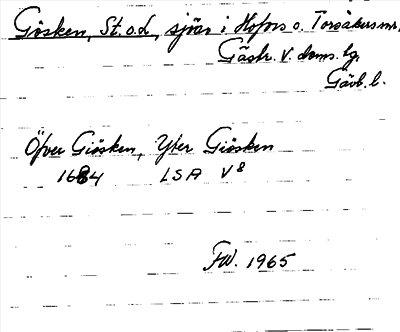 Gösken, St. o. L, sjöar i Hofors o. Torsåkers snr,
Gästr. V. doms. hg,
Gävb. l.
Öfver Giösken, Yter Giösken
1684 LSA V8
FW. 1965